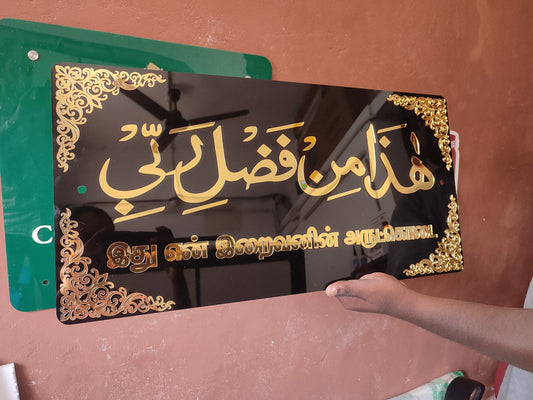 هَٰذَا مِنْ فَضْلِ رَبِّي
இது என் இறைவனின் அருட்கொடை.
C